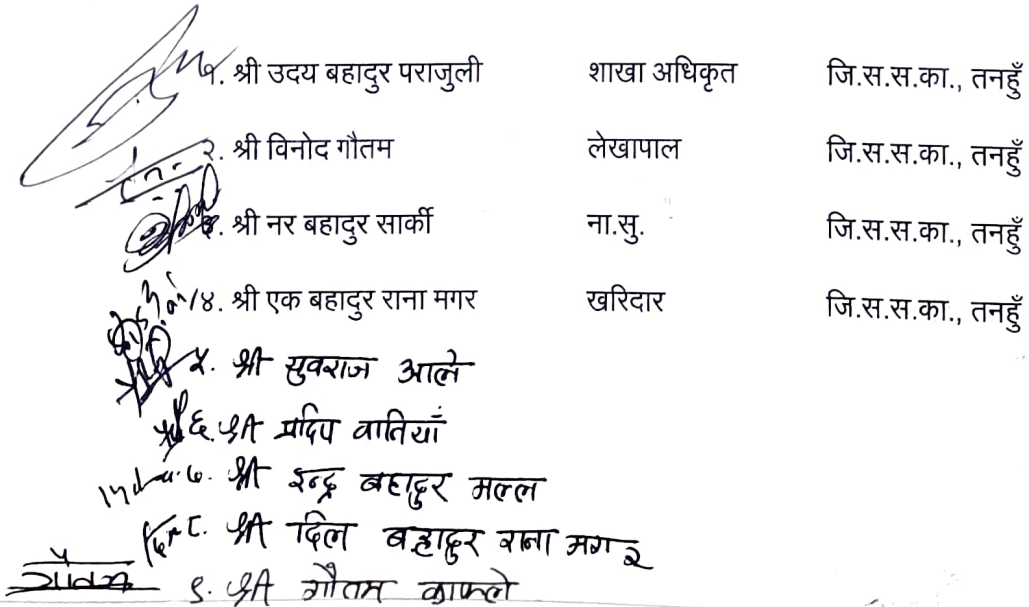 १. श्री उदय बहादुर पराजुली शाखा अधिकृत जि.स.स.का., तनहुँ
२. श्री विनोद गौतम लेखापाल जि.स.स.का., तनहुँ
३. श्री नर बहादुर सार्की ना.सु. जि.स.स.का., तनहुँ
४. श्री एक बहादुर राना मगर खरिदार जि.स.स.का., तनहुँ
५. श्री सुवराज आले
६. श्री प्रदिप वातियाँ
७. श्री इन्द्र बहादुर मल्ल
८. श्री दिल बहादुर राना मगर
९. श्री गौतम काफ्ले